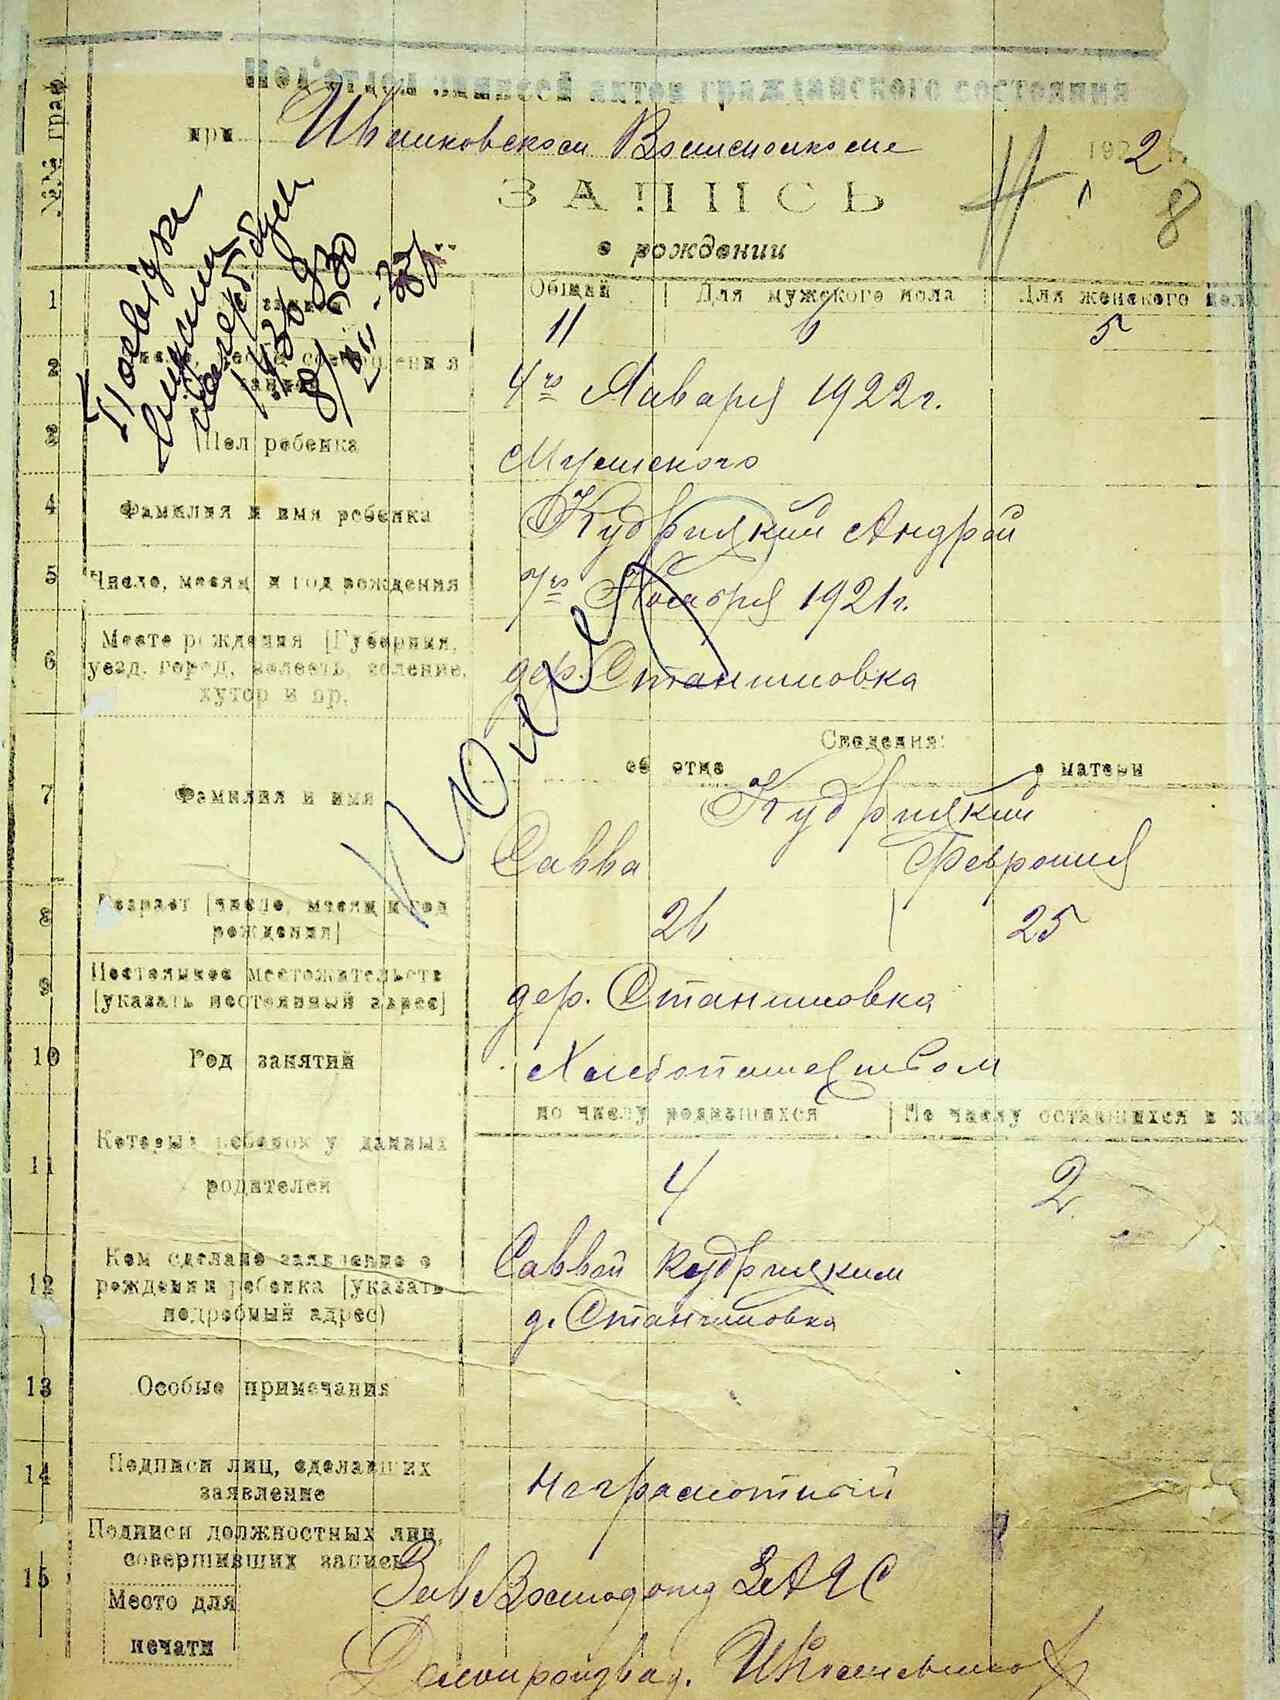 Подотдел записей актов гражданского состояния
при Иванковском Волисполкоме 1922 г.
№№ граф
ЗАПИСЬ 8
о рождении
1 Общий Для мужского пола Для женского пола
11 6 5
2 4го Января 1922 г.
3 Пол ребенка Мужского
4 Фамилия и имя ребенка Кудрицкий Андрей
5 Число, месяц и год рождения 7го Ноября 1921 г.
6 Место рождения [Губерния,
уезд, город, волость, селение,
хутор и пр.
дер. Станишовка
Сведения:
об отце о матери
7 Фамилия и имя Кудрицкий
Савва Феврония
8 Возраст [число, месяц и год
рождения]
26 25
9 Постоянное местожительств
[указать постоянный адрес]
дер. Станишовка
10 Род занятий Хлебопашеством
по числу родившихся По числу оставшихся в жив
11 Который ребенок у данных
родителей
4 2
12 Кем сделано заявление о
рождении ребенка [указать
подробный адрес)
Саввой Кудрицким
д. Станишовка
13 Особые примечания
14 Подписи лиц, сделавших
заявление
Неграмотный
Подписи должностных лиц,
совершивших запись
15 Зав Волподотд ЗАГС
Место для
печати
Делопроизвод.